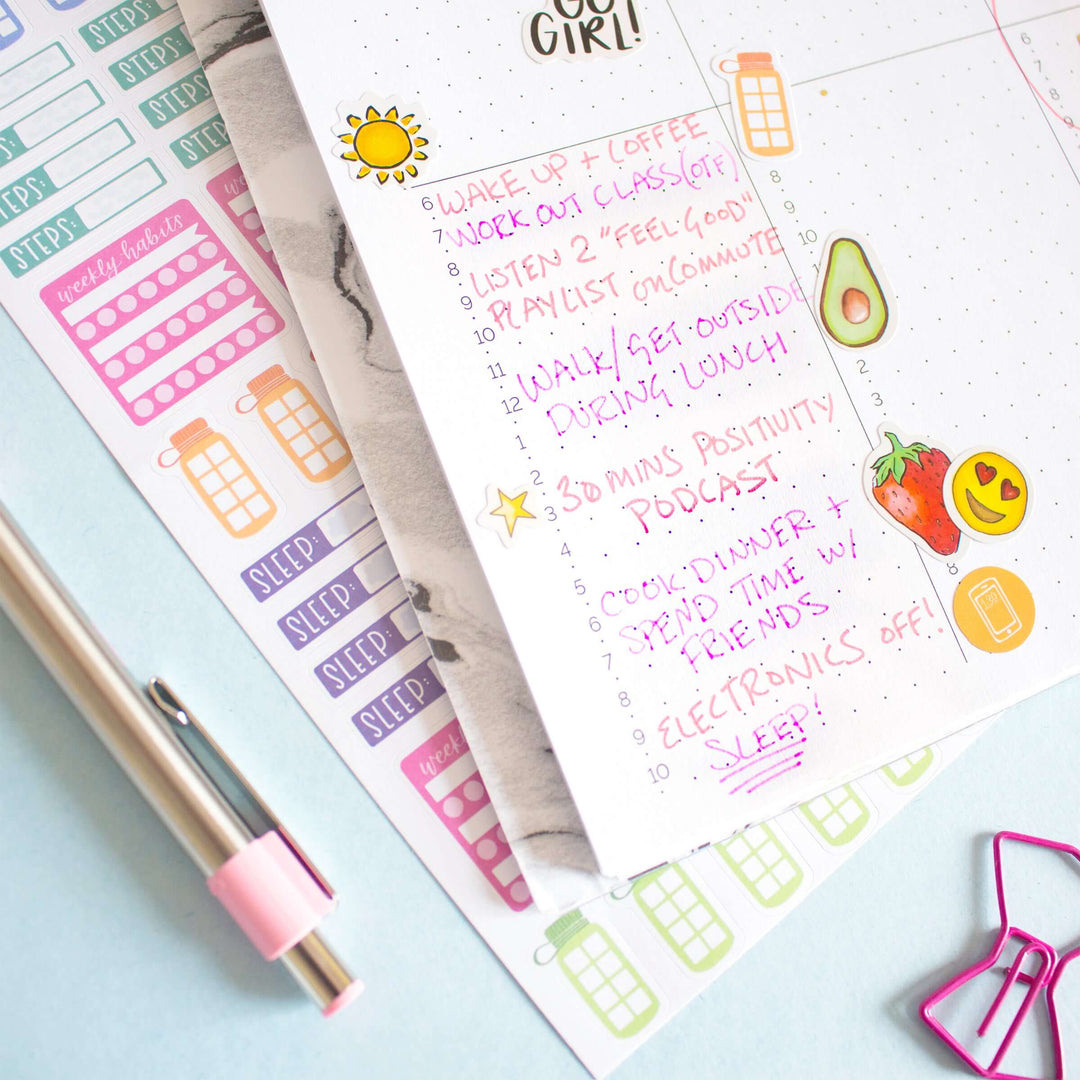 GO
GIRL!
STEPS:
STEPS:
STEPS:
STEPS:
STEPS:
STEPS:
weekly habits
SLEEP:
SLEEP:
SLEEP:
SLEEP:
6 WAKE UP + COFFEE
7 WORK OUT CLASS (OTF)
8 LISTEN 2 "FEEL GOOD"
9 PLAYLIST on COMMUTE
10
11 WALK/GET OUTSIDE
12 DURING LUNCH
1
2 30 MINS POSITIVITY
3 PODCAST
4
5 COOK DINNER +
6 SPEND TIME W/
7 FRIENDS
8
9 ELECTRONICS OFF!
10 SLEEP!
8
9
10
2
3
8
6
7
8